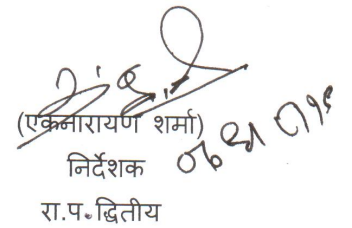 (एकनारायण शर्मा)
निर्देशक
रा.प.द्वितीय